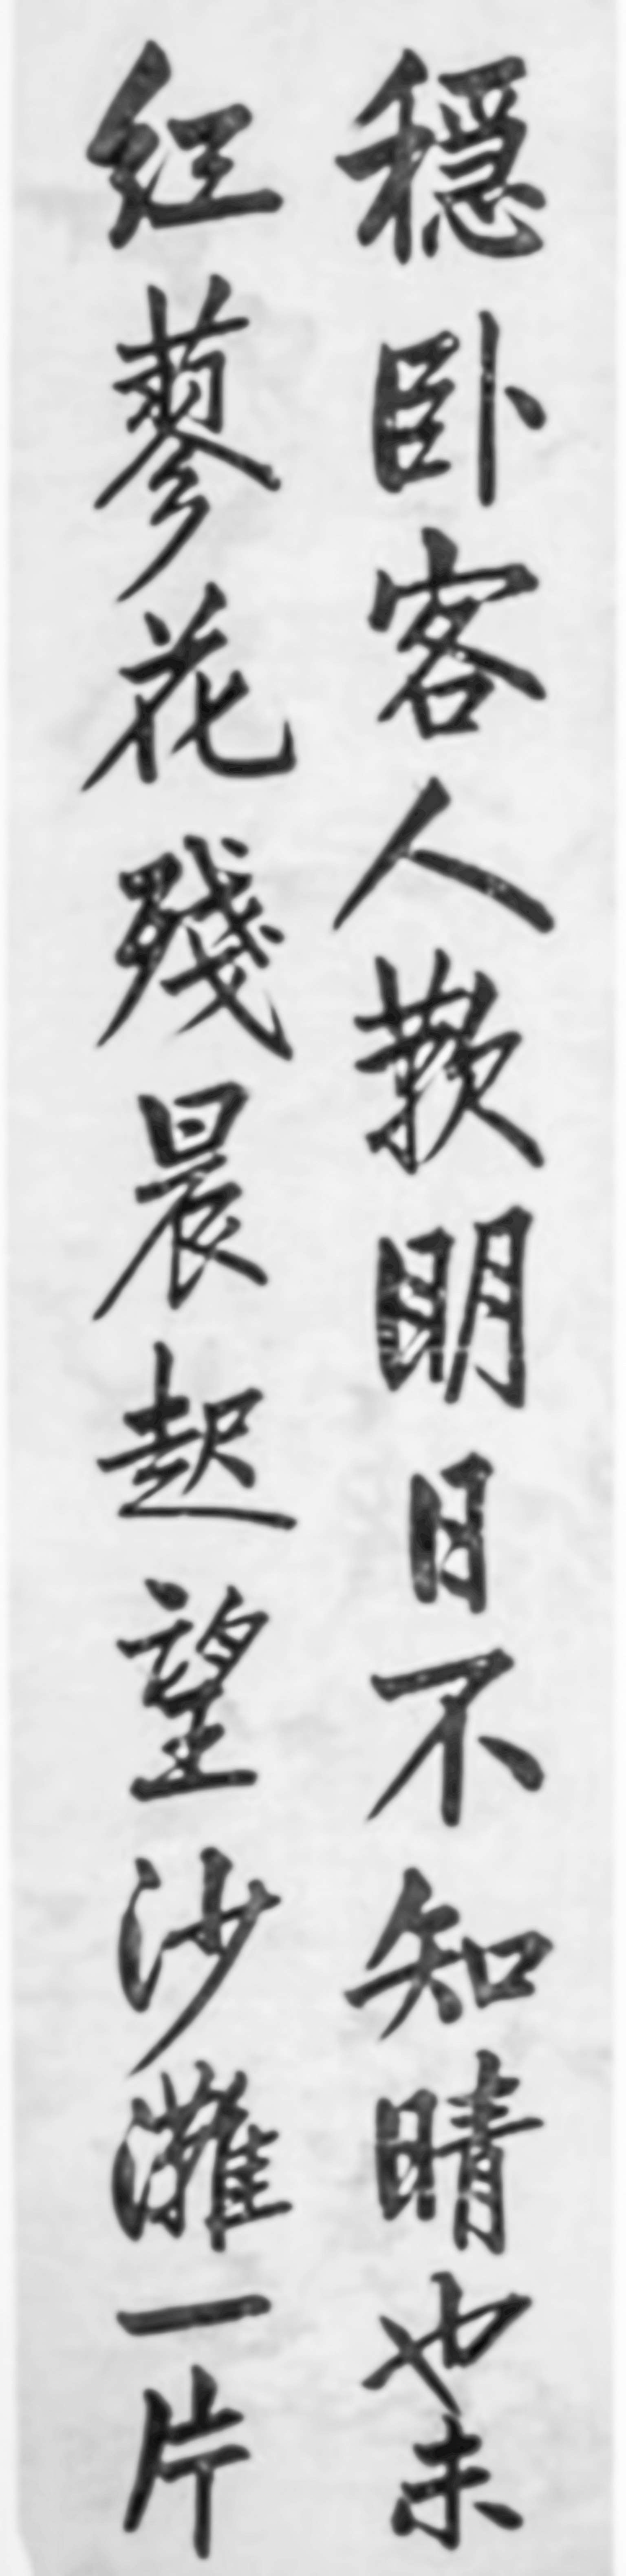 穩卧客人歎明日不知晴也未
紅蓼花殘晨起望沙灘一片